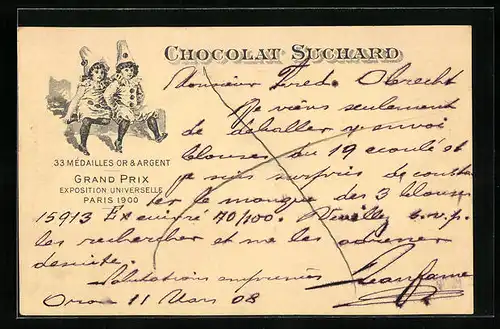 CHOCOLAT SUCHARD
33 MÉDAILLES OR & ARGENT
GRAND PRIX
EXPOSITION UNIVERSELLE
PARIS 1900
Monsieur Fred. Obrecht
Je viens seulement
de déballer v. envoi
blouses du 19 écoulé et
je suis surpris de consta-
ter le manque des 3 blouses
15913 70/100. Veuillez s.v.p.
les rechercher et me les adresser
de suite.
Salutations empressées
Oron 11 Mars 08